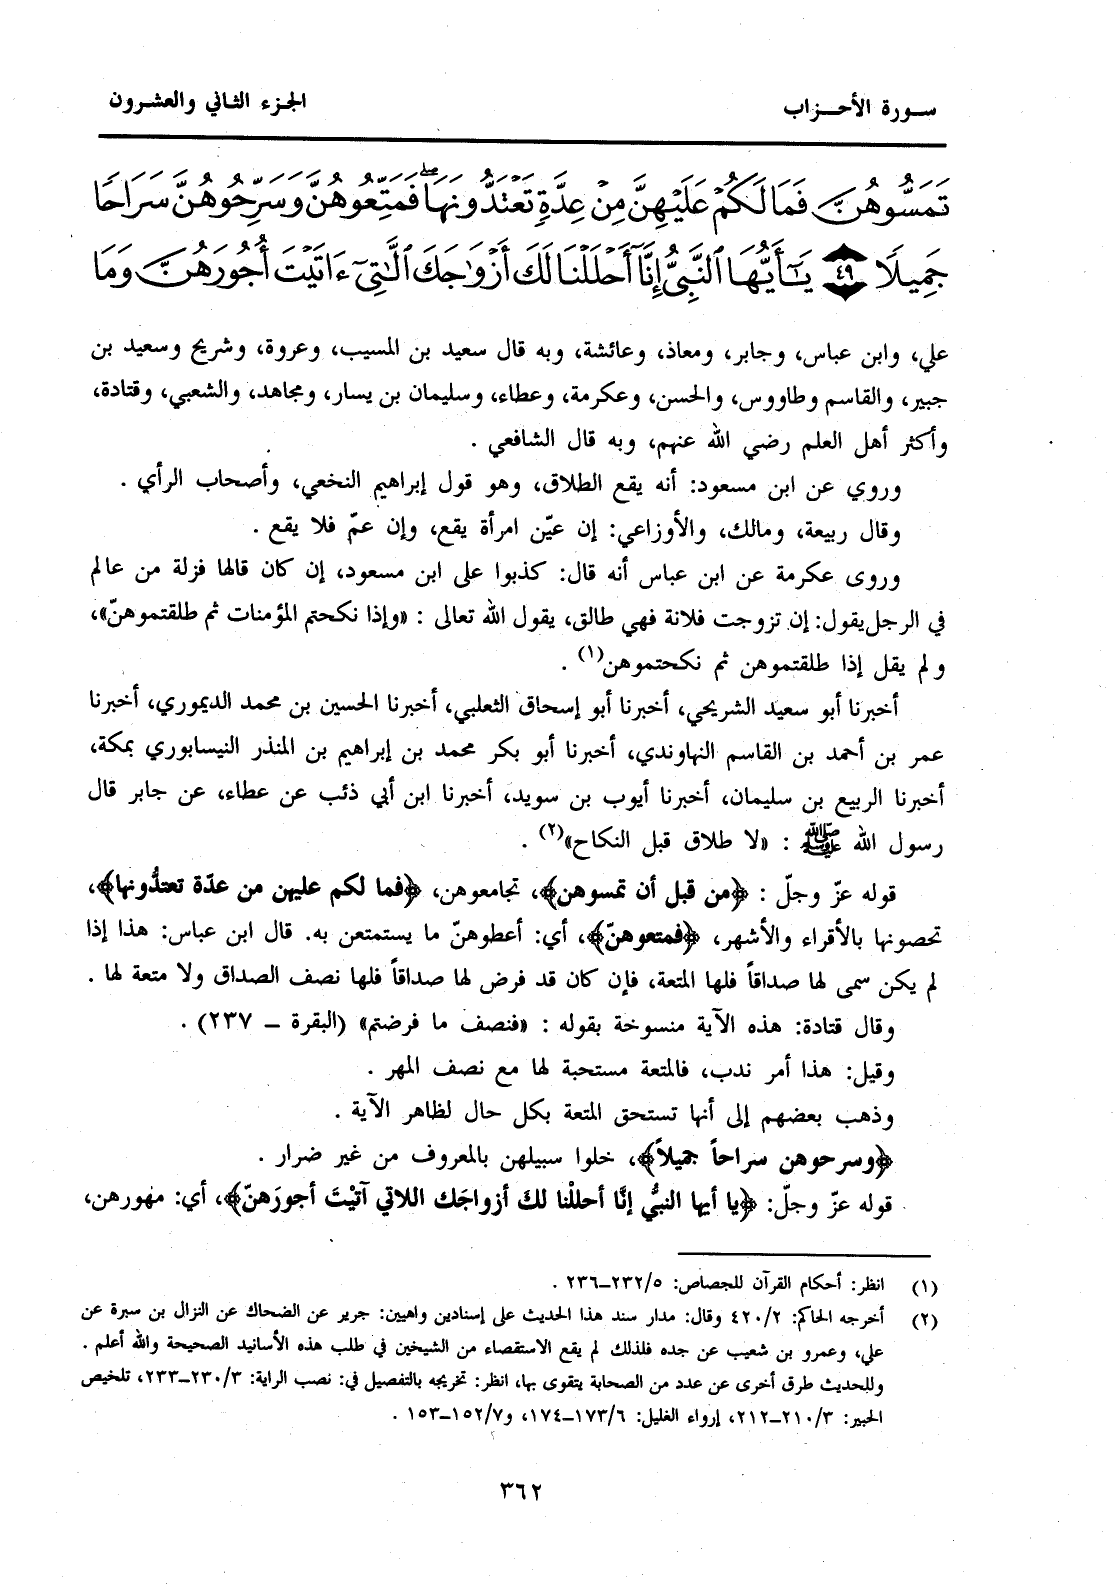 سورة الأحزاب
الجزء الثاني والعشرون
تَمَسُّوهُنَّ فَمَا لَكُمْ عَلَيْهِنَّ مِنْ عِدَّةٍ تَعْتَدُّونَهَا ۖ فَمَتِّعُوهُنَّ وَسَرِّحُوهُنَّ سَرَاحًا
جَمِيلًا ٤٩ يَٰٓأَيُّهَا ٱلنَّبِىُّ إِنَّآ أَحْلَلْنَا لَكَ أَزْوَٰجَكَ ٱلَّٰتِىٓ ءَاتَيْتَ أُجُورَهُنَّ وَمَا
علي، وابن عباس، وجابر، ومعاذ، وعائشة، وبه قال سعيد بن المسيب، وعروة، وشريح وسعيد بن
جبير، والقاسم وطاووس، والحسن، وعكرمة، وعطاء، وسليمان بن يسار، ومجاهد، والشعبي، وقتادة،
وأكثر أهل العلم رضي الله عنهم، وبه قال الشافعي .
وروي عن ابن مسعود: أنه يقع الطلاق، وهو قول إبراهيم النخعي، وأصحاب الرأي .
وقال ربيعة، ومالك، والأوزاعي: إن عيّن امرأة يقع، وإن عمّ فلا يقع .
وروى عكرمة عن ابن عباس أنه قال: كذبوا على ابن مسعود، إن كان قالها فزلة من عالم
في الرجل يقول: إن تزوجت فلانة فهي طالق، يقول الله تعالى : «وإذا نكحتم المؤمنات ثم طلقتموهنّ»،
ولم يقل إذا طلقتموهن ثم نكحتموهن(١) .
أخبرنا أبو سعيد الشريحي، أخبرنا أبو إسحاق الثعلبي، أخبرنا الحسين بن محمد الديموري، أخبرنا
عمر بن أحمد بن القاسم النهاوندي، أخبرنا أبو بكر محمد بن إبراهيم بن المنذر النيسابوري بمكة،
أخبرنا الربيع بن سليمان، أخبرنا أيوب بن سويد، أخبرنا ابن أبي ذئب عن عطاء، عن جابر قال
رسول الله ﷺ : «لا طلاق قبل النكاح»(٢) .
قوله عزّ وجلّ : ﴿من قبل أن تمسوهن﴾، تجامعوهن، ﴿فما لكم عليهن من عدّة تعتدُّونها﴾،
تحصونها بالأقراء والأشهر، ﴿فمتعوهنّ﴾، أي: أعطوهنّ ما يستمتعن به. قال ابن عباس: هذا إذا
لم يكن سمى لها صداقاً فلها المتعة، فإن كان قد فرض لها صداقاً فلها نصف الصداق ولا متعة لها .
وقال قتادة: هذه الآية منسوخة بقوله : «فنصف ما فرضتم» (البقرة – ٢٣٧) .
وقيل: هذا أمر ندب، فالمتعة مستحبة لها مع نصف المهر .
وذهب بعضهم إلى أنها تستحق المتعة بكل حال لظاهر الآية .
﴿وسرحوهن سراحاً جميلاً﴾، خلوا سبيلهن بالمعروف من غير ضرار .
قوله عزّ وجلّ: ﴿يا أيها النبيُّ إنَّا أحللْنا لكَ أزواجَك اللاتي آتيْتَ أجورَهنّ﴾، أي: مهورهن،
(١) انظر: أحكام القرآن للجصاص: ٢٣٢/٥–٢٣٦ .
(٢) أخرجه الحاكم: ٤٢٠/٢ وقال: مدار سند هذا الحديث على إسنادين واهيين: جرير عن الضحاك عن النزال بن سبرة عن
علي، وعمرو بن شعيب عن جده فلذلك لم يقع الاستقصاء من الشيخين في طلب هذه الأسانيد الصحيحة والله أعلم .
وللحديث طرق أخرى عن عدد من الصحابة يتقوى بها، انظر: تخريجه بالتفصيل في: نصب الراية: ٢٣٠/٣–٢٣٣، تلخيص
الحبير: ٢١٠/٣–٢١٢، إرواء الغليل: ١٧٣/٦–١٧٤، و١٥٢/٧–١٥٣ .
٣٦٢